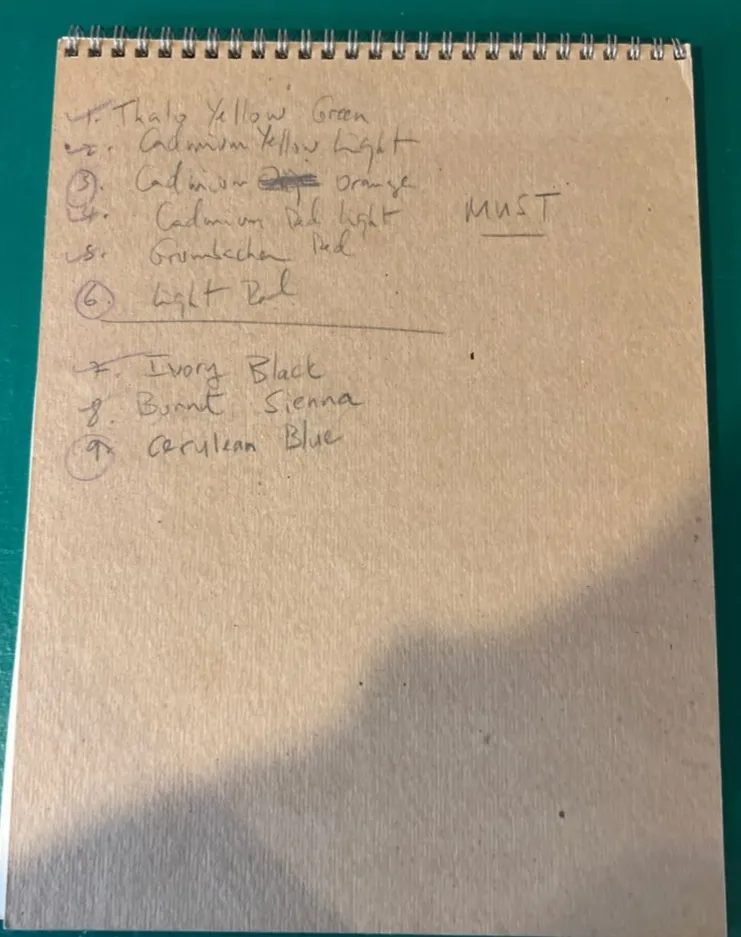 1. Thalo Yellow Green
2. Cadmium Yellow Light
3. Cadmium Orange
4. Cadmium Red Light
MUST
5. Grumbacher Red
6. Light Red
7. Ivory Black
8. Burnt Sienna
9. Cerulean Blue